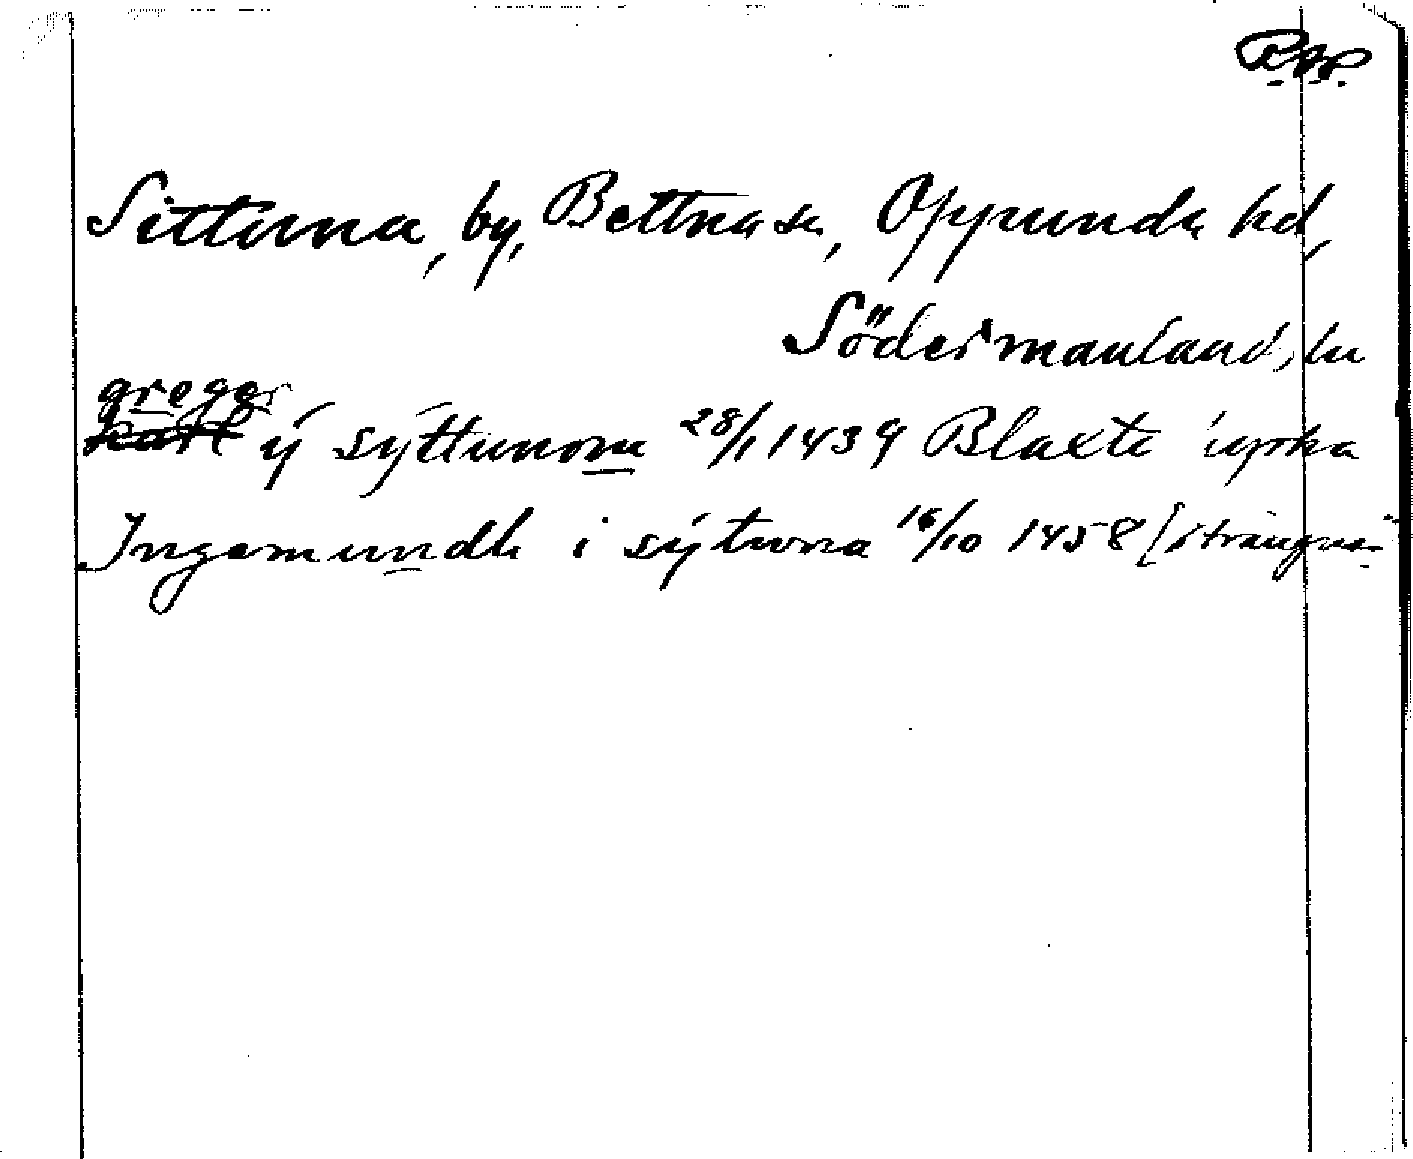 R.A.P.
Sittuna, by, Bettna sn, Oppunda hd,
Södermanland, län
greger
karl ÿ sÿttunom 28/1 1439 Blaxte iepsta
Ingemundh i sÿtwna 16/10 1458 [Strängnä